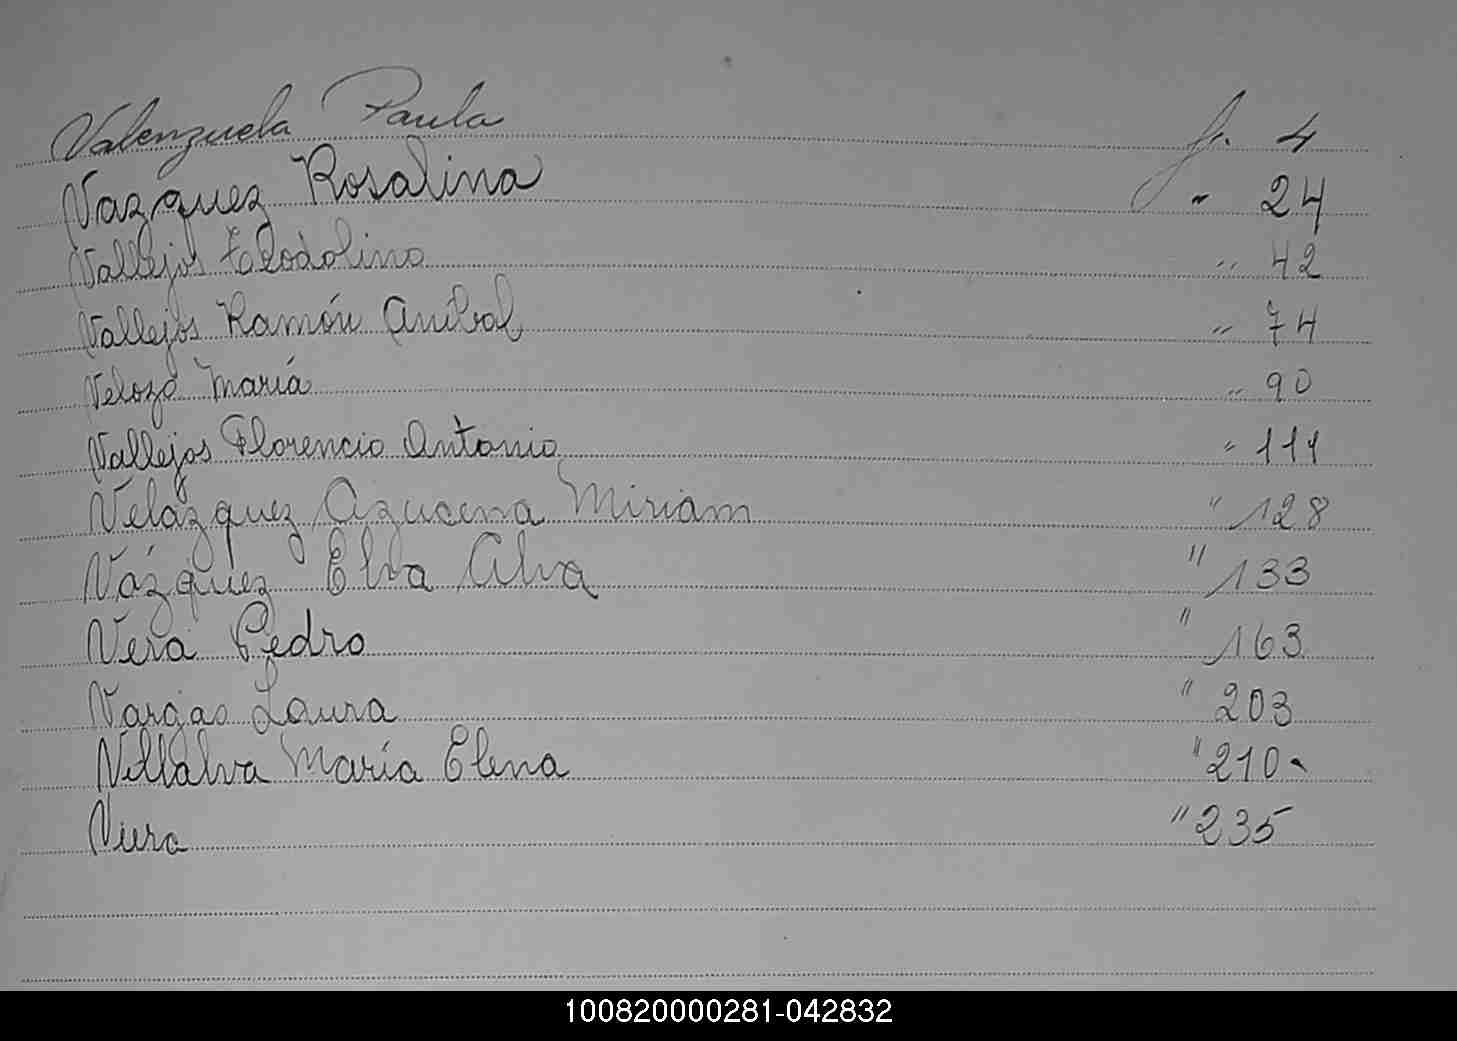 Valenzuela Paula f. 4
Vazquez Rosalina " 24
Vallejos Clodolino " 42
Vallejos Ramón Aníbal " 74
Velozo María " 90
Vallejos Florencio Antonio " 111
Velázquez Azucena Miriam " 128
Vázquez Elva Alva " 133
Vera Pedro " 163
Vargas Laura " 203
Villalva María Elena " 210
" 235
100820000281-042832